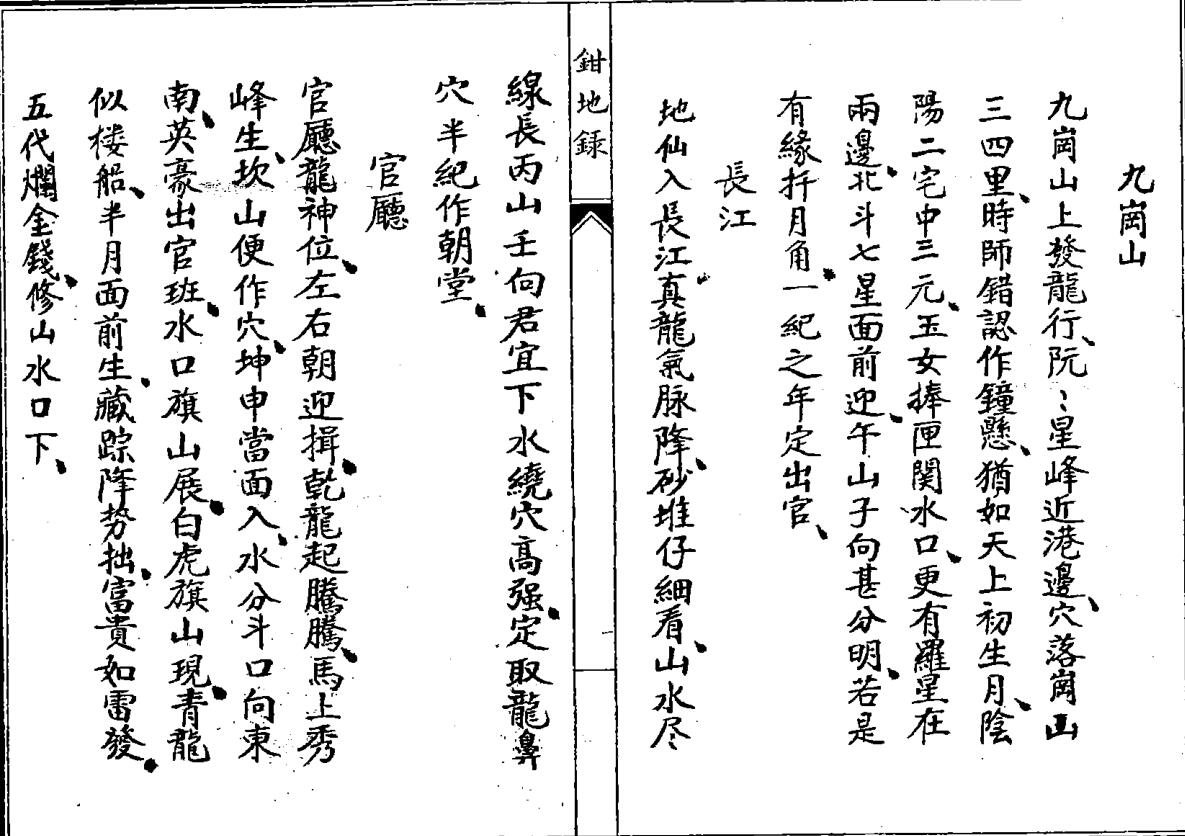 九崗山
九崗山上發龍行、阮〻星峰近港邊、穴落崗山
三四里、時師錯認作鐘懸、猶如天上初生月、陰
陽二宅中三元、玉女捧匣関水口、更有羅星在
兩邊、北斗七星面前迎、午山子向甚分明、若是
有緣扦月角、一紀之年定出官、
長江
地仙入長江、真龍氣脉降、砂堆仔細看、山水尽
鉗地録
線長丙山壬向君宜下水繞穴高强、定取龍鼻
穴半紀作朝堂、
官廳
官廳龍神位、左右朝迎揖、乾龍起騰騰、馬上秀
峰生、坎山便作穴、坤申當面入、水分斗口向東
南、英豪出官班、水口旗山展、白虎旗山現、青龍
似楼船、半月面前生、藏踪降势拙、富貴如雷發、
五代爛金錢、修山水口下、